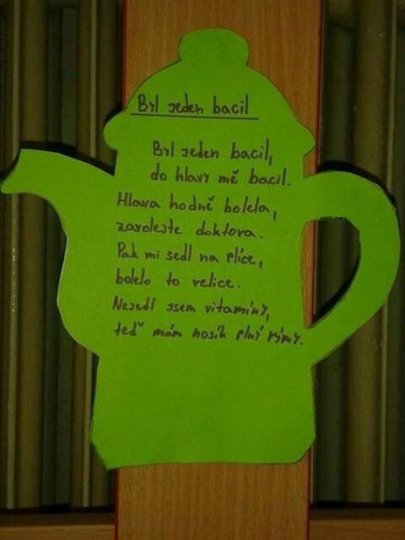 Byl jeden bacil
Byl jeden bacil,
do hlavy mě bacil.
Hlava hodně bolela,
zavolejte doktora.
Pak mi sedl na plíce,
bolelo to velice.
Nejedl jsem vitamíny,
teď mám nosík plný rýmy.